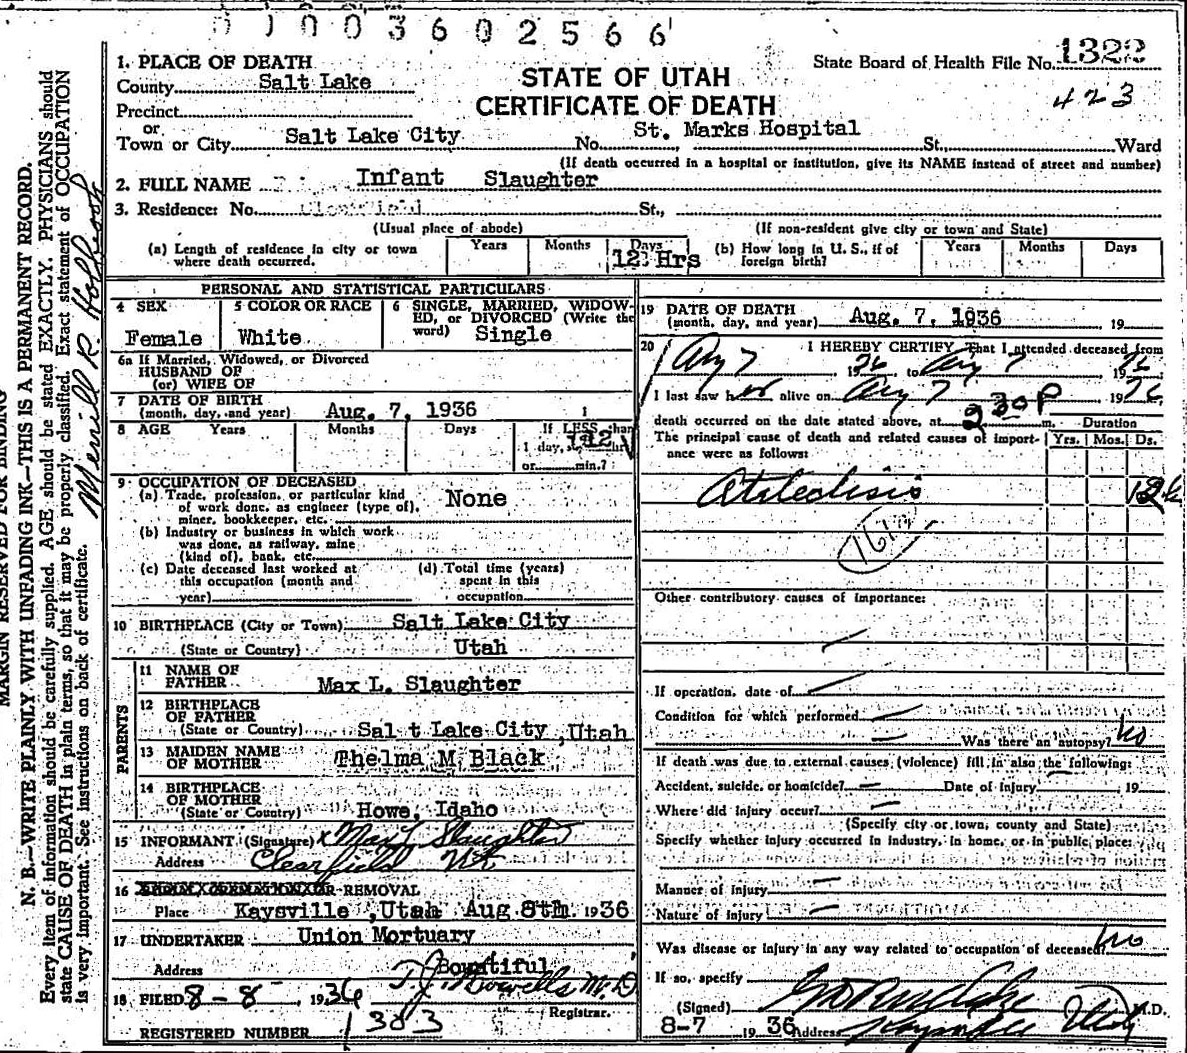 01003602566
1. PLACE OF DEATH
County Salt Lake
Precinct
or
Town or City Salt Lake City
STATE OF UTAH
CERTIFICATE OF DEATH
State Board of Health File No. 1322
423
No. St. Marks Hospital St., Ward
(If death occurred in a hospital or institution, give its NAME instead of street and number)
2. FULL NAME Infant Slaughter
3. Residence: No. Clearfield St.,
(Usual place of abode) (If non-resident give city or town and State)
(a) Length of residence in city or town where death occurred. Years Months Days 12 Hrs
(b) How long in U. S., if of foreign birth? Years Months Days
PERSONAL AND STATISTICAL PARTICULARS
4 SEX Female
5 COLOR OR RACE White
6 SINGLE, MARRIED, WIDOWED, or DIVORCED (Write the word) Single
6a If Married, Widowed, or Divorced
HUSBAND OF
(or) WIFE OF
7 DATE OF BIRTH
(month, day, and year) Aug. 7, 1936
8 AGE Years Months Days If LESS than
1 day, 12 hrs
or min.?
9 OCCUPATION OF DECEASED
(a) Trade, profession, or particular kind
of work done, as engineer (type of),
miner, bookkeeper, etc. None
(b) Industry or business in which work
was done, as railway, mine
(kind of), bank, etc.
(c) Date deceased last worked at
this occupation (month and
year)
(d) Total time (years)
spent in this
occupation
10 BIRTHPLACE (City or Town) Salt Lake City
(State or Country) Utah
PARENTS
11 NAME OF
FATHER Max L. Slaughter
12 BIRTHPLACE
OF FATHER
(State or Country) Sal t Lake City ,Utah
13 MAIDEN NAME
OF MOTHER Thelma M. Black
14 BIRTHPLACE
OF MOTHER
(State or Country) Howe, Idaho
15 INFORMANT (Signature) x Max L Slaughter
Address Clearfield Ut
16 OR REMOVAL
Place Kaysville ,Utah Aug 8th. 1936
17 UNDERTAKER Union Mortuary
Address Bountiful
18 FILED 8-8 1936 M.D
Registrar.
REGISTERED NUMBER 1303
19 DATE OF DEATH
(month, day, and year) Aug. 7, 1936 19
20 I HEREBY CERTIFY, That I attended deceased from
Aug 7, 1936, to Aug 7 1936
I last saw h alive on Aug 7 1936,
death occurred on the date stated above, at 2 30 P m. Duration
The principal cause of death and related causes of importance were as follows: Yrs. Mos. Ds.
Atelectisis
Other contributory causes of importance:
If operation, date of
Condition for which performed
Was there an autopsy? No
If death was due to external causes (violence) fill in also the following:
Accident, suicide, or homicide? Date of Injury 19
Where did injury occur?
(Specify city or town, county and State)
Specify whether injury occurred in industry, in home, or in public place:
Manner of Injury
Nature of Injury
Was disease or injury in any way related to occupation of deceased? No
If so, specify
(Signed) M.D.
8-7 1936 Address Kaysville Utah
MARGIN RESERVED FOR BINDING
N. B.—WRITE PLAINLY WITH UNFADING INK—THIS IS A PERMANENT RECORD.
Every item of information should be carefully supplied. AGE should be stated EXACTLY. PHYSICIANS should
state CAUSE OF DEATH in plain terms, so that it may be properly classified. Exact statement of OCCUPATION
is very important. See instructions on back of certificate.
Merrill R. Holbrook